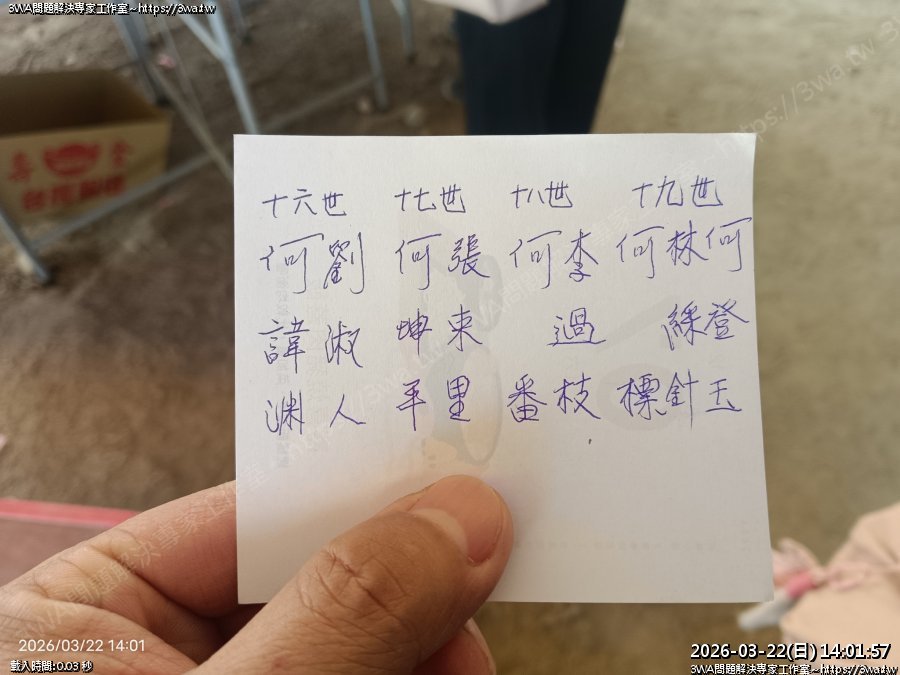 3WA問題解決專家工作室~https://3wa.tw
十六世 十七世 十八世 十九世
何劉 何張 何李 何林何
諱淑 坤束 過 綵登
渊人 平里 番枝 標針玉
2026/03/22 14:01
載入時間:0.03 秒
2026-03-22(日) 14:01:57
3WA問題解決專家工作室~https://3wa.tw